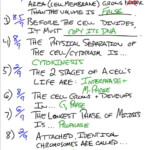 AREA (CELL MEMBRANE) GROWS
THAN THE VOLUME IS FALSE
3) BEFORE THE CELL DIVIDES,
IT MUST COPY ITS DNA
4) THE PHYSICAL SEPARATION OF
THE CELL/CYTOPLASM, IS...
CYTOKINESIS
5) THE 2 STAGES OF A CELL'S
LIFE ARE: INTERPHASE +
M-PHASE
6) THE CELL GROWS + DEVELOPS
IN... G, PHASE
7) THE LONGEST PHASE OF MITOSIS
IS... PROPHASE
8) ATTACHED, IDENTICAL
CHROMOSOMES ARE CALLED...